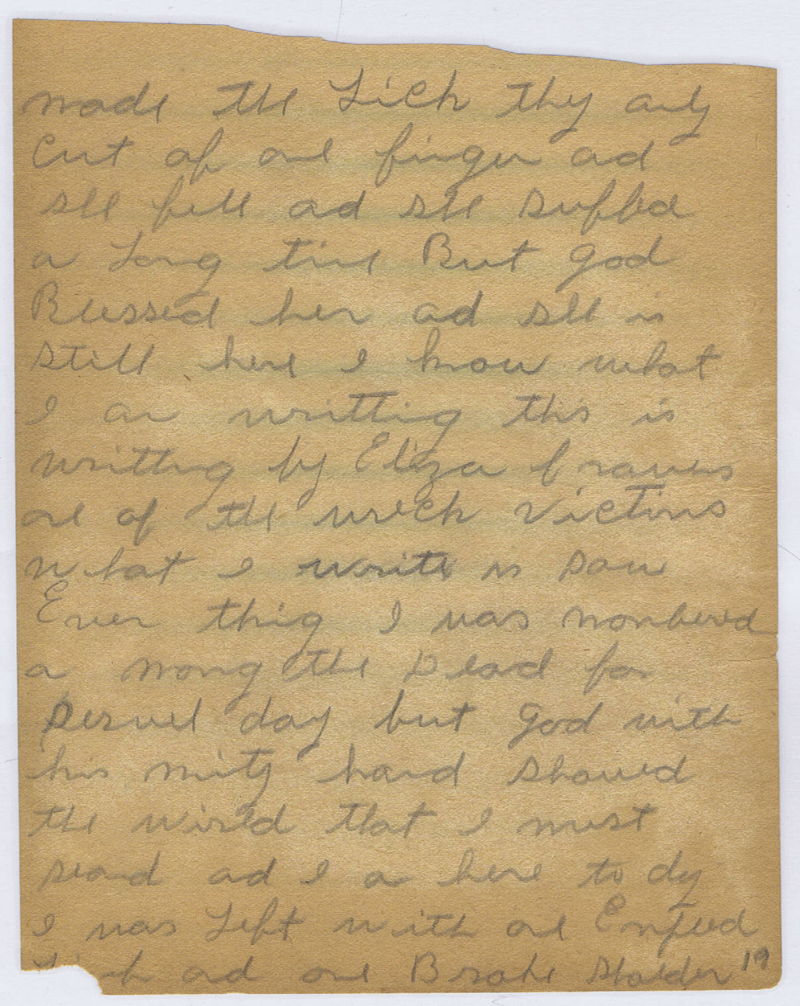 made the Lick thy only
Cut of one finger ad
she fell ad she suffed
a Long time But god
Blessed her ad she is
still here I know what
I am writting this is
writting by Eliza Graves
one of the wreck victims
what I write is saw
Ever thing I was nonbered
a mong the Dead for
servel day but god with
his mity hand showed
the wirld that I must
stand ad I a here to dy
I was Left with one
ad one Broke sholder 19